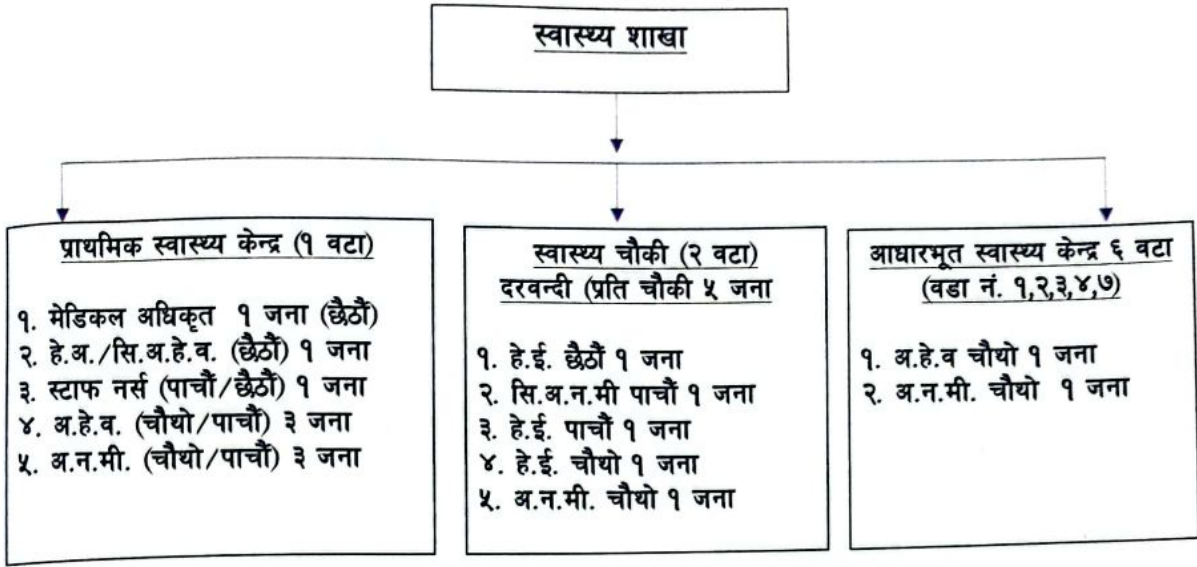 स्वास्थ्य शाखा
प्राथमिक स्वास्थ्य केन्द्र (१ वटा)
१. मेडिकल अधिकृत १ जना (छैठौं)
२. हे.अ./सि.अ.हे.व. (छैठौं) १ जना
३. स्टाफ नर्स (पाचौं/छैठौं) १ जना
४. अ.हे.व. (चौथो/पाचौं) ३ जना
५. अ.न.मी. (चौथो/पाचौं) ३ जना
स्वास्थ्य चौकी (२ वटा)
दरवन्दी (प्रति चौकी ५ जना
१. हे.ई. छैठौं १ जना
२. सि.अ.न.मी पाचौं १ जना
३. हे.ई. पाचौं १ जना
४. हे.ई. चौथो १ जना
५. अ.न.मी. चौथो १ जना
आधारभूत स्वास्थ्य केन्द्र ६ वटा
(वडा नं. १,२,३,४,७)
१. अ.हे.व चौथो १ जना
२. अ.न.मी. चौथो १ जना